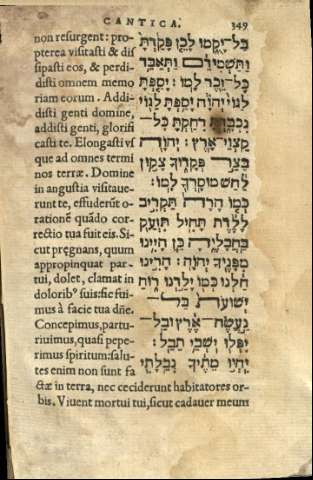 CANTICA. 349
non resurgent: pro-
pterea visitasti & dis
sipasti eos, & perdi-
disti omnem memo
riam eorum. Addi-
disti genti domine,
addisti genti, glorifi
casti te. Elongasti vs
que ad omnes termi
nos terræ. Domine
in angustia visitaue-
runt te, effuderũt o-
rationē quãdo cor-
rectio tua fuit eis. Si-
cut pręgnans, quum
appropinquat par-
tui, dolet, clamat in
doloribꝰ suis: sic fui-
mus à facie tua dñe.
Concepimus, partu-
riuimus, quasi pepe-
rimus spiritum: salu-
tes enim non sunt fa
ctæ in terra, nec ceciderunt habitatores or-
bis. Viuent mortui tui, sicut cadauer meum
בַּל־יָקֻמוּ לָכֵן פָּקַדְתָּ
וַתַּשְׁמִידֵם וַתְּאַבֵּד
כָּל־זֵכֶר לָמוֹ׃ יָסַפְתָּ
לַגּוֹי יְהוָֹה יָסַפְתָּ לַגּוֹי
נִכְבָּדְתָּ רִחַקְתָּ כָּל־
קַצְוֵי־אָרֶץ׃ יְהוָה
בַּצַּר פְּקָדוּךָ צָקוּן
לַחַשׁ מוּסָרְךָ לָמוֹ׃
כְּמוֹ הָרָה תַּקְרִיב
לָלֶדֶת תָּחִיל תִּזְעַק
בַּחֲבָלֶיהָ כֵּן הָיִינוּ
מִפָּנֶיךָ יְהוָֹה׃ הָרִינוּ
חַלְנוּ כְּמוֹ יָלַדְנוּ רוּחַ
יְשׁוּעֹת בַּל־
נַעֲשֶׂה אֶרֶץ וּבַל־
יִפְּלוּ יֹשְׁבֵי תֵבֵל׃
יִחְיוּ מֵתֶיךָ נְבֵלָתִי